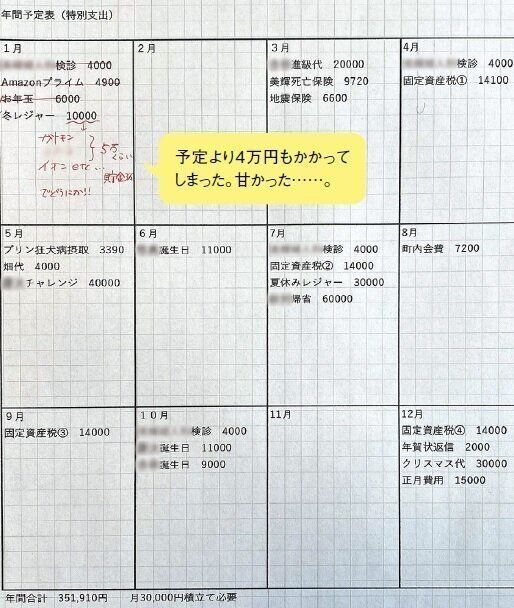 年間予定表（特別支出）
1月
検診 4000
Amazonプライム 4900
お年玉 6000
冬レジャー 10000
ガソリン
イオン etc...
5万くらい
貯金
でどうにか!!
予定より4万円もかかって
しまった。甘かった……。
2月
3月
進級代 20000
美輝死亡保険 9720
地震保険 6600
4月
検診 4000
固定資産税① 14100
5月
プリン狂犬病摂取 3390
畑代 4000
チャレンジ 40000
6月
誕生日 11000
7月
検診 4000
固定資産税② 14000
夏休みレジャー 30000
帰省 60000
8月
町内会費 7200
9月
固定資産税③ 14000
10月
検診 4000
誕生日 11000
誕生日 9000
11月
12月
固定資産税④ 14000
年賀状返信 2000
クリスマス代 30000
正月費用 15000
年間合計 351,910円 月30,000円積立て必要